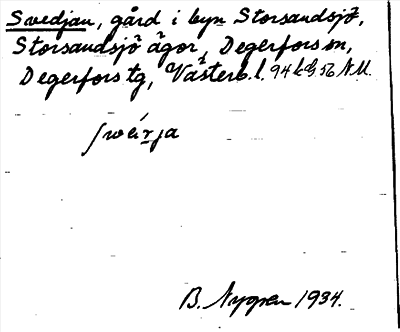 Svedjan, gård i byn Storsandsjö,
Storsandsjö ägor, Degerfors sn,
Degerfors tg, Västerb. l.
B. Nygren 1934.